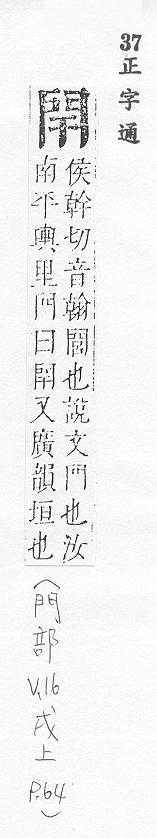 37正字通
閈
侯幹切音翰閭也說文門也汝
南平輿里門曰閈又廣韻垣也
(門部 V.16 戌上 P.64)